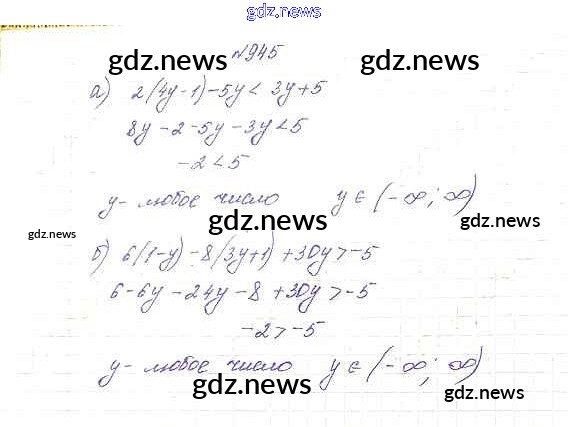 gdz.news
№945
gdz.news gdz.news
а) 2(4y-1)-5y < 3y+5
8y-2-5y-3y<5
-2<5
y- любое число y∈(-∞;∞)
gdz.news gdz.news
gdz.news
б) 6(1-y)-8(3y+1)+30y>-5
6-6y-24y-8+30y>-5
-2>-5
y- любое число y∈(-∞;∞)
gdz.news gdz.news